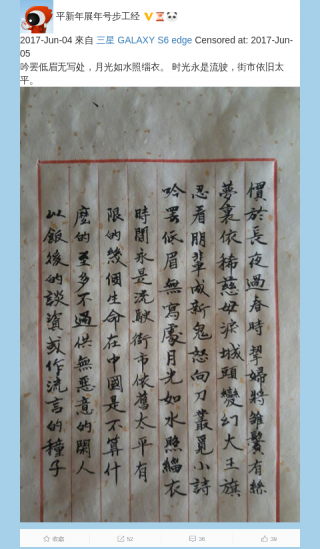 平新年展年号步工经
2017-Jun-04 來自 三星 GALAXY S6 edge Censored at: 2017-Jun-
05
吟罢低眉无写处，月光如水照缁衣。 时光永是流驶，街市依旧太
平。
慣於長夜過春時挈婦將雛鬢有絲
夢裏依稀慈母淚城頭變幻大王旗
忍看朋輩成新鬼怒向刀叢覓小詩
吟罷低眉無寫處月光如水照緇衣
時間永是流駛街市依舊太平有
限的幾個生命在中國是不算什
麼的至多不過供無惡意的閑人
以飯後的談資或作流言的種子
收藏
52
36
39